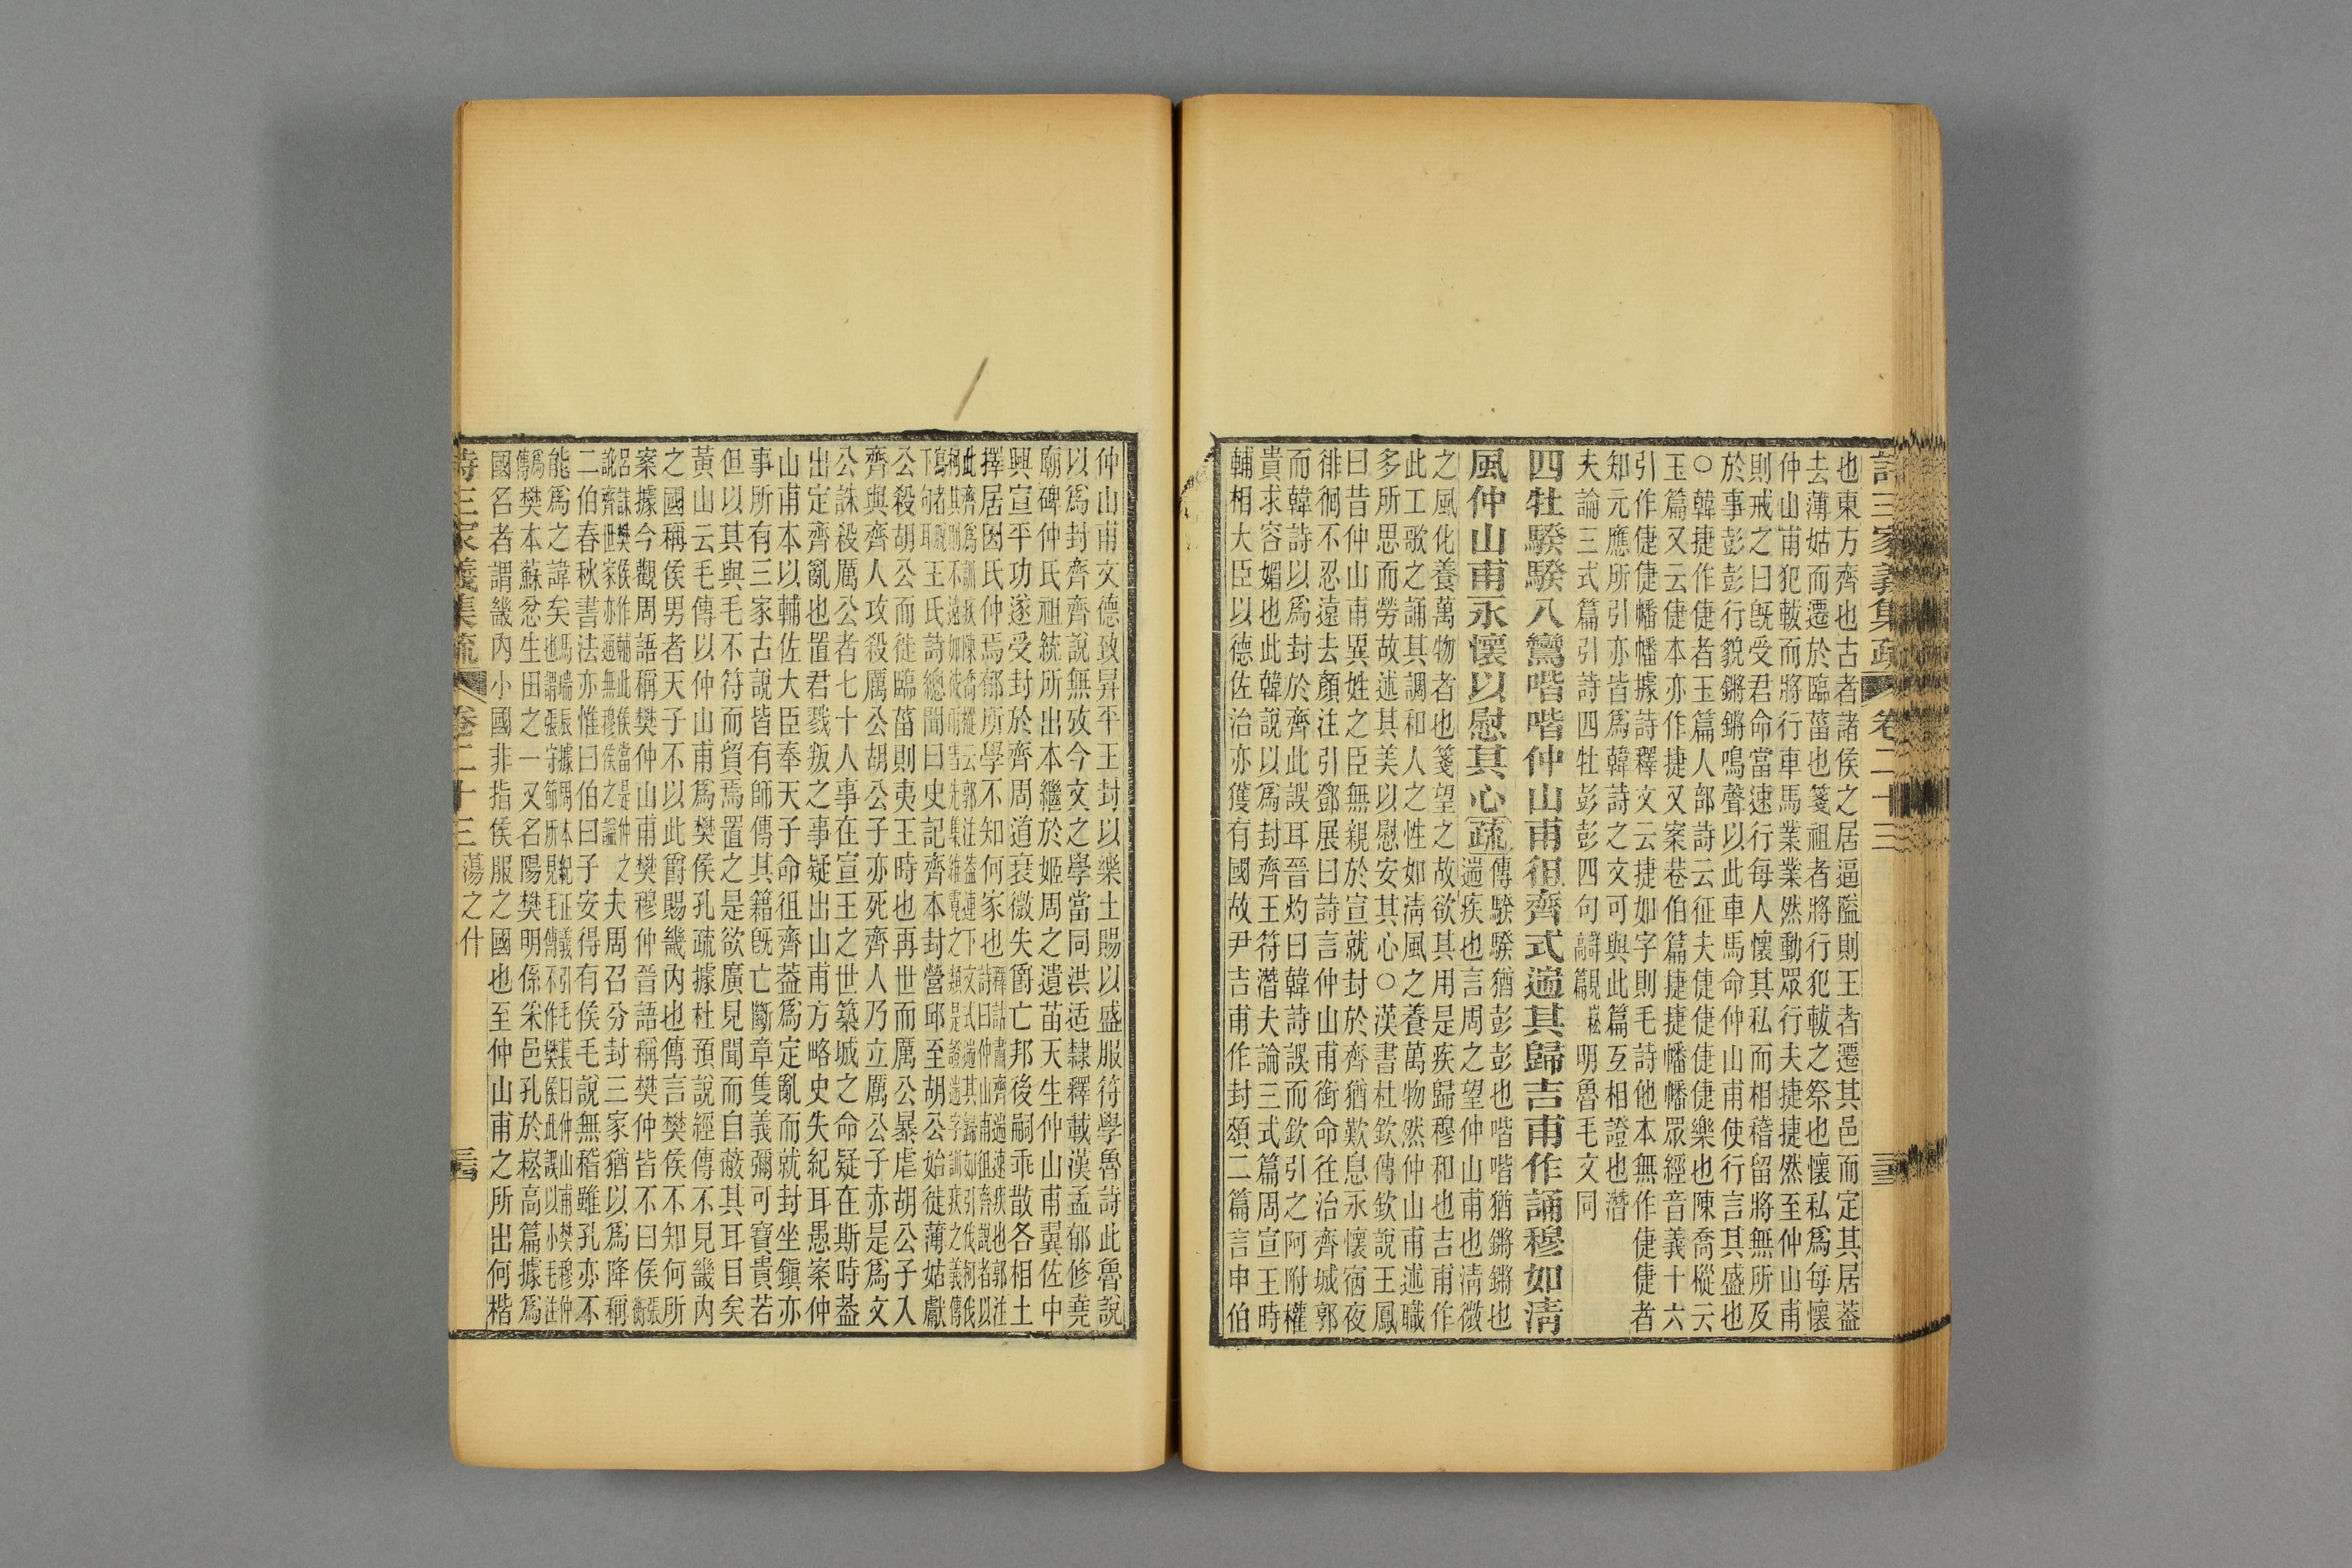 詩三家義集疏 卷二十三
也東方齊也古者諸侯之居逼隘則王者遷其邑而定其居葢
去薄姑而遷於臨菑也箋祖者將行犯軷之祭也懷私爲每懷
仲山甫犯軷而將行車馬業業然動眾行夫捷捷然至仲山甫
則戒之曰旣受君命當速行每人懷其私而相稽留將無所及
於事彭彭行貌鏘鏘鳴聲以此車馬命仲山甫使行言其盛也
○韓捷作倢者玉篇人部詩云征夫倢倢倢倢樂也陳喬樅云
玉篇又云倢本亦作捷又案巷伯篇捷捷幡幡眾經音義十六
引作倢倢幡幡據詩釋文云捷如字則毛詩他本無作倢倢者
知元應所引亦皆爲韓詩之文可與此篇互相證也潛
夫論三式篇引詩四牡彭彭四句辭見崧高篇明魯毛文同
四牡騤騤八鸞喈喈仲山甫徂齊式遄其歸吉甫作誦穆如淸
風仲山甫永懷以慰其心疏傳騤騤猶彭彭也喈喈猶鏘鏘也
遄疾也言周之望仲山甫也淸微
之風化養萬物者也箋望之故欲其用是疾歸穆和也吉甫作
此工歌之誦其調和人之性如淸風之養萬物然仲山甫述職
多所思而勞故述其美以慰安其心○漢書杜欽傳欽說王鳳
曰昔仲山甫異姓之臣無親於宣就封於齊猶歎息永懷宿夜
徘徊不忍遠去顏注引鄧展曰詩言仲山甫銜命往治齊城郭
而韓詩以爲封於齊此誤耳晉灼曰韓詩誤而欽引之阿附權
貴求容媚也此韓說以爲封齊王符潛夫論三式篇周宣王時
輔相大臣以德佐治亦獲有國故尹吉甫作封頌二篇言申伯
仲山甫文德致昇平王封以樂土賜以盛服符學魯詩此魯說
以爲封齊齊說無攷今文之學當同洪适隸釋載漢孟郁修堯
廟碑仲氏祖統所出本繼於姬周之遺苗天生仲山甫翼佐中
興宣平功遂受封於齊周道衰微失爵亡邦後嗣乖散各相土
擇居因氏仲焉郁所學不知何家也釋詁肅齊遄速疾也郭注
詩曰仲山甫徂齊說者以
此齊爲訓
公殺胡公而徙臨菑則夷王時也再世而厲公暴虐胡公子入
齊與齊人攻殺厲公胡公子亦死齊人乃立厲公子赤是爲文
公誅殺厲公者七十人事在宣王之世築城之命疑在斯時葢
出定齊亂也置君戮叛之事疑出山甫方略史失紀耳愚案仲
山甫本以輔佐大臣奉天子命徂齊葢爲定亂而就封坐鎭亦
事所有三家古說皆有師傳其籍旣亡斷章隻義彌可寶貴若
但以其與毛不符而貿焉置之是欲廣見聞而自蔽其耳目矣
黃山云毛傳以仲山甫爲樊侯孔疏據杜預說經傳不見畿內
之國稱侯男者天子不以此爵賜畿內也傳言樊侯不知何所
案據今觀周語稱樊仲山甫樊穆仲晉語稱樊仲皆不曰侯張衡
二伯春秋書法亦惟曰伯曰子安得有侯毛說無稽雖孔亦不
能爲之諱矣
國名者謂畿內小國非指侯服之國也至仲山甫之所出何楷
詩三家義集疏 卷二十三 蕩之什